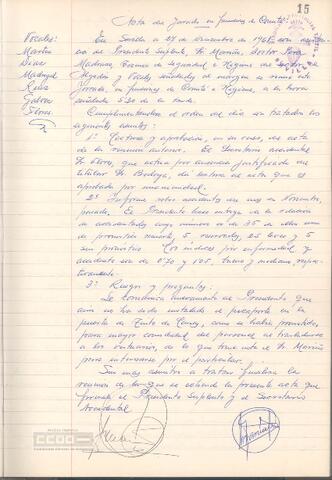 15
Acta del Jurado en funciones de Comité
Vocales: En Sevilla a 27 de Diciembre de 1968, con asistencia
Martín del Presidente Suplente, Sr. Morián, Doctor
Díaz Técnico de Seguridad e Higiene
Madrigal y Vocales señalados al margen se reúne este
Ruiz Jurado, en funciones de Comité e Higiene, a la hora
señalada 5'30 de la tarde.
Flores Cumplimentando el orden del día son tratados los
siguientes asuntos:
1º Lectura y aprobación, en su caso, del acta
de la reunión anterior. El Secretario accidental
Sr. Flores, que actúa por ausencia justificada del
titular Sr. Bodega, da lectura al acta que es
aprobada por unanimidad.
2º Informe sobre accidentes del mes de Noviembre
pasado. El Presidente hace entrega de la relación
de accidentados cuyo número es de 35 de ellos uno
de pronóstico menos, 5 reservados, 25 leves y 5
sin pronóstico. Los índices por enfermedad y
accidente son de 0'50 y 1'05, respec-
tivamente.
3º Ruegos y preguntas.
Le nuevamente al Presidente que
aún no ha sido instalado el pasaporte en la
puerta de como se había prometido,
para mayor comodidad del personal al trasladarse
a los vestuarios, de lo que toma nota el Sr. Morián
para interesarse por el particular.
Sin más asuntos a tratar finaliza la
reunión de la que se extiende la presente acta que
firmada el Presidente Suplente y el Secretario
Accidental
CCOO